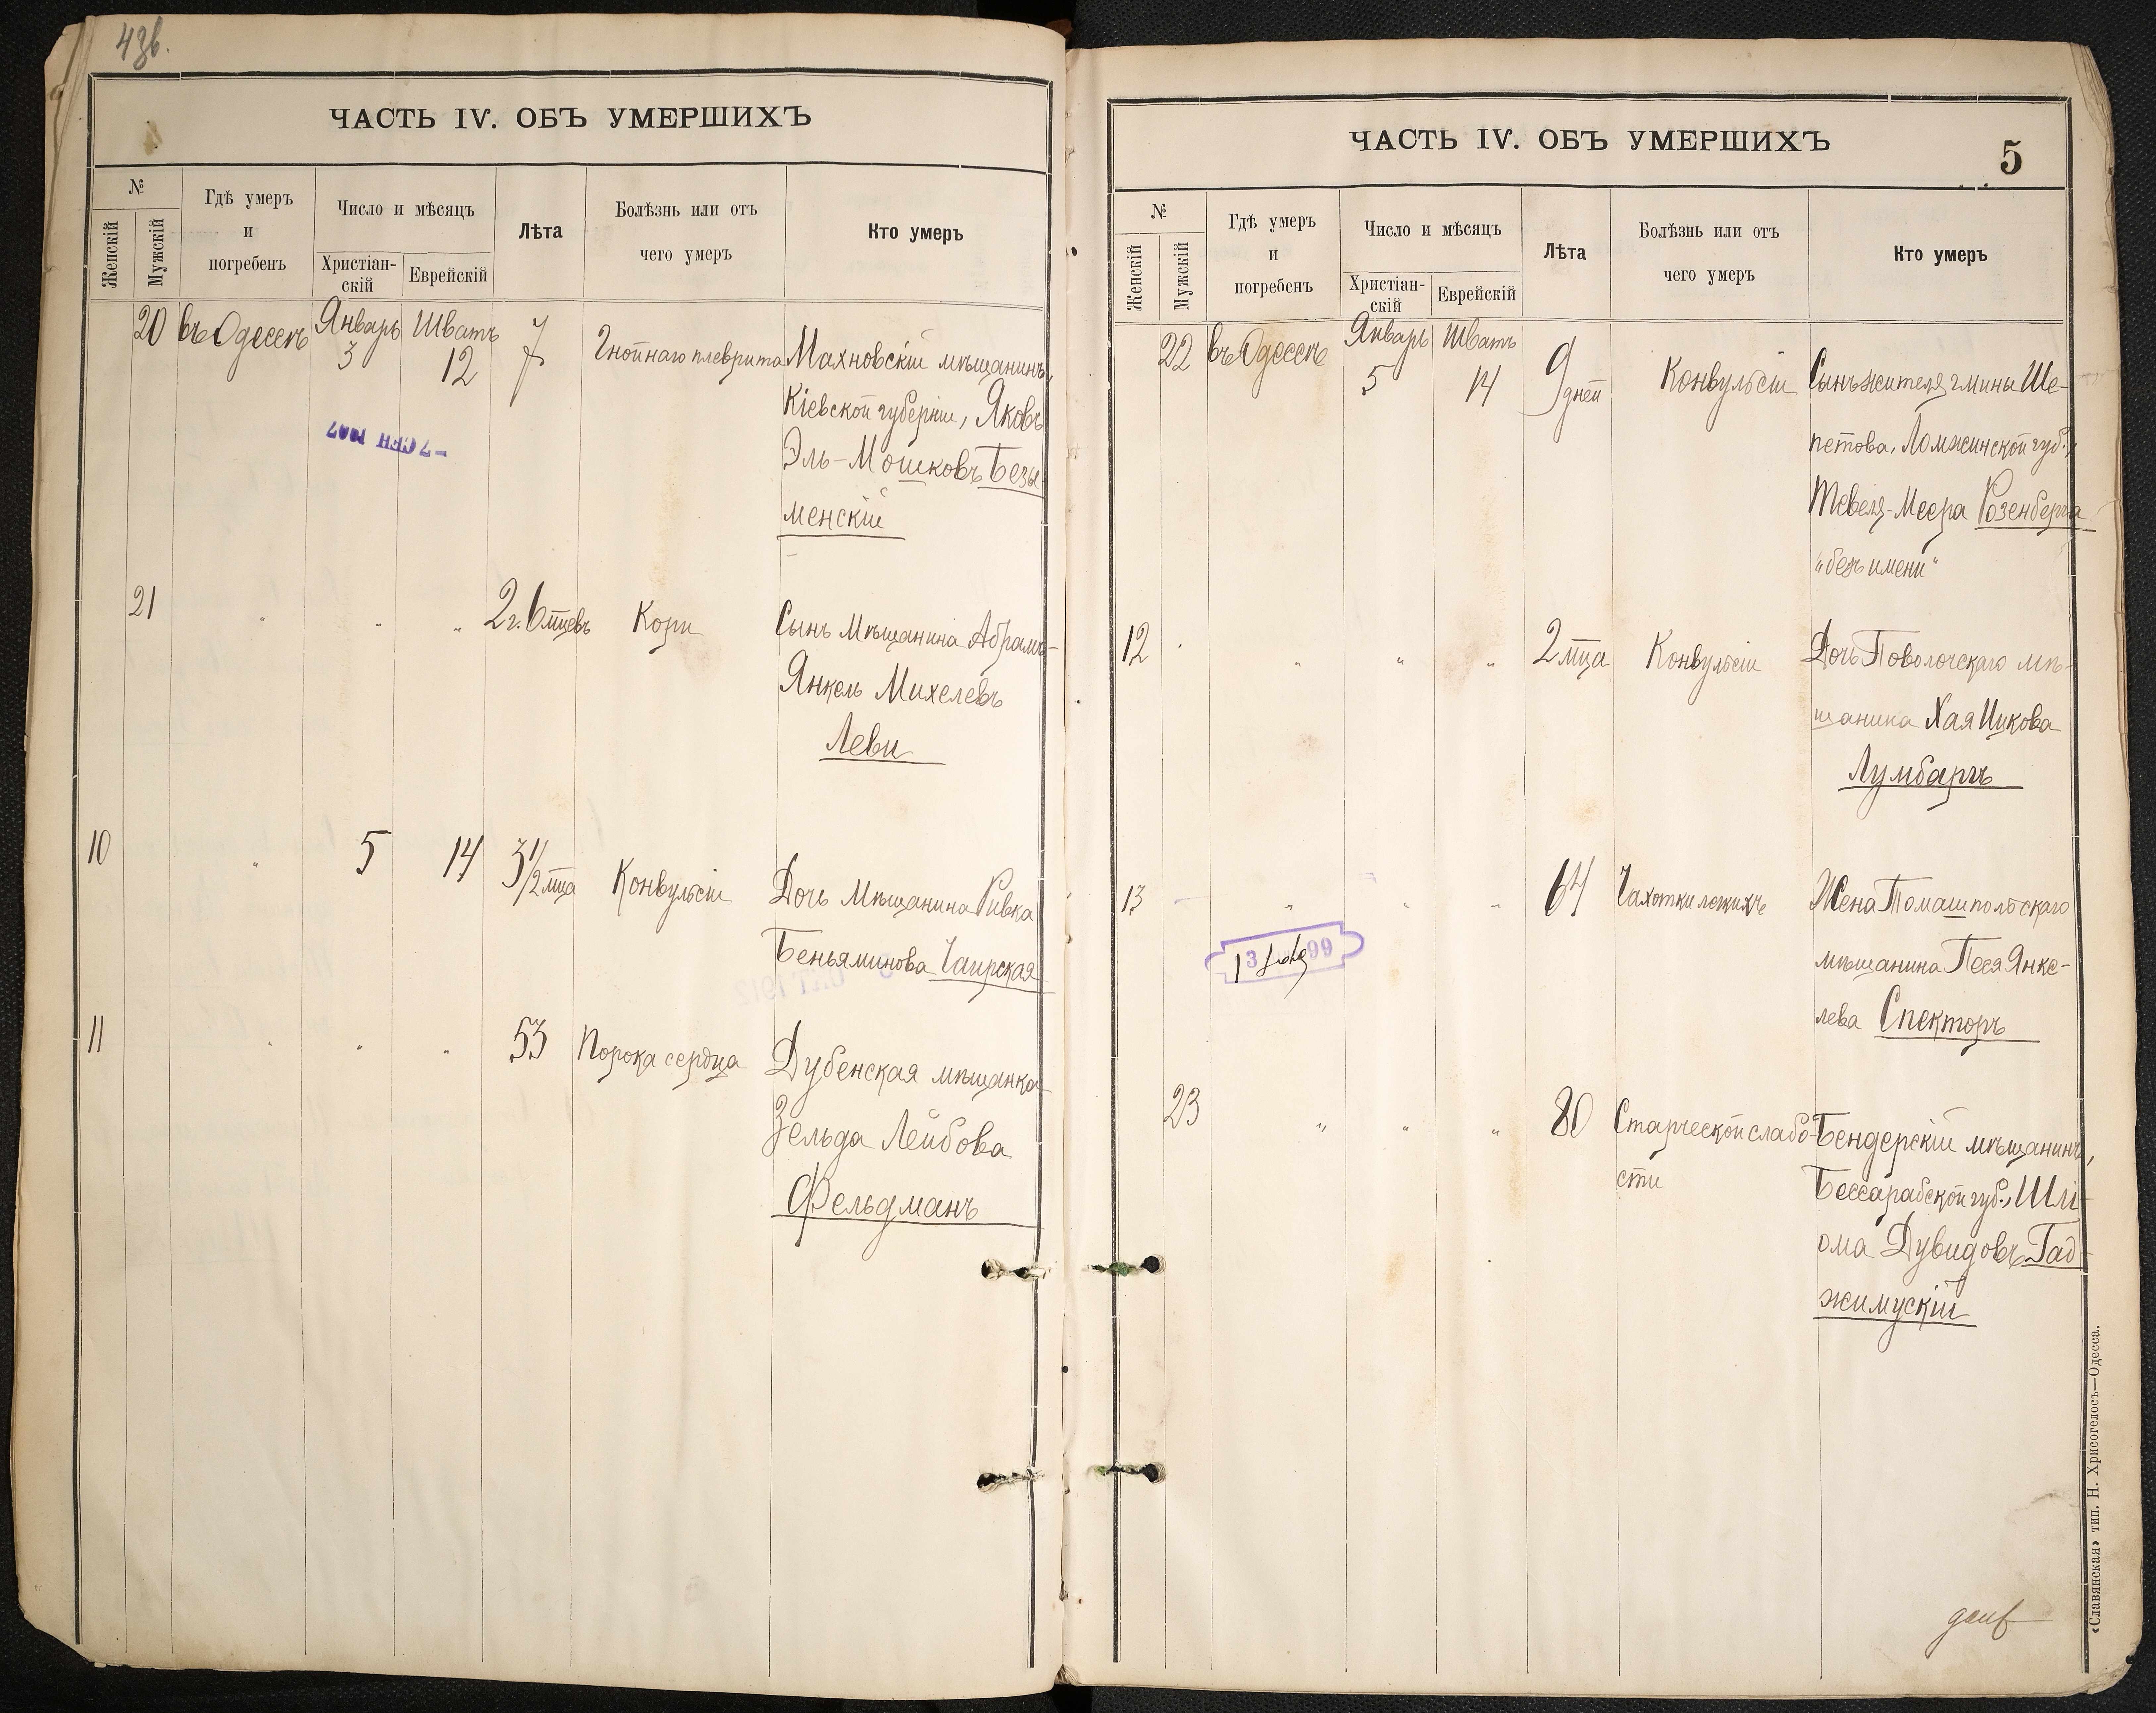 43б.
ЧАСТЬ IV. ОБЪ УМЕРШИХЪ
№
Женскій
Мужскій
Гдѣ умеръ
и
погребенъ
Число и мѣсяцъ
Христіан-
скій
Еврейскій
Лѣта
Болѣзнь или отъ
чего умеръ
Кто умеръ
20 въ Одессѣ Январь 3 Шватъ 12 7 Гнойнаго плеврита Махновскій мѣщанинъ,
Кіевской губерніи, Яковъ
Эль-Мошковъ Безы-
менскій
-7 СЕН 1907
21 " " " 2 г. 6 мцевъ Кори Сынъ мѣщанина Абрамъ-
Янкель Михелевъ
Леви
10 " 5 14 3 1/2 мца Конвульсіи Дочь мѣщанина Ривка
Беньяминова Чаирская
11 " " " 53 Порока сердца Дубенская мѣщанка
Зельда Лейбова
Фельдманъ
ЧАСТЬ IV. ОБЪ УМЕРШИХЪ
5
№
Женскій
Мужскій
Гдѣ умеръ
и
погребенъ
Число и мѣсяцъ
Христіан-
скій
Еврейскій
Лѣта
Болѣзнь или отъ
чего умеръ
Кто умеръ
22 въ Одессѣ Январь 5 Шватъ 14 9 дней Конвульсіи Сынъ жителя гмины Ше-
петова, Ломжинской губ.,
Тевеля-Меера Розенберга
"безъ имени"
12 " " " 2 мца Конвульсіи Дочь Поволочскаго мѣ-
щанина Хая Ицкова
Лумбаргъ
13 " " " 64 Чахотки легкихъ Жена Томашпольскаго
мѣщанина Песя Янке-
лева Спекторъ
99
23 " " " 80 Старческой слабо- Бендерскій мѣщанинъ,
сти Бессарабской губ., Шлі-
ома Дувидовъ Гад-
жимускій
«Славянская» тип. Н. Хрисогелосъ—Одесса.